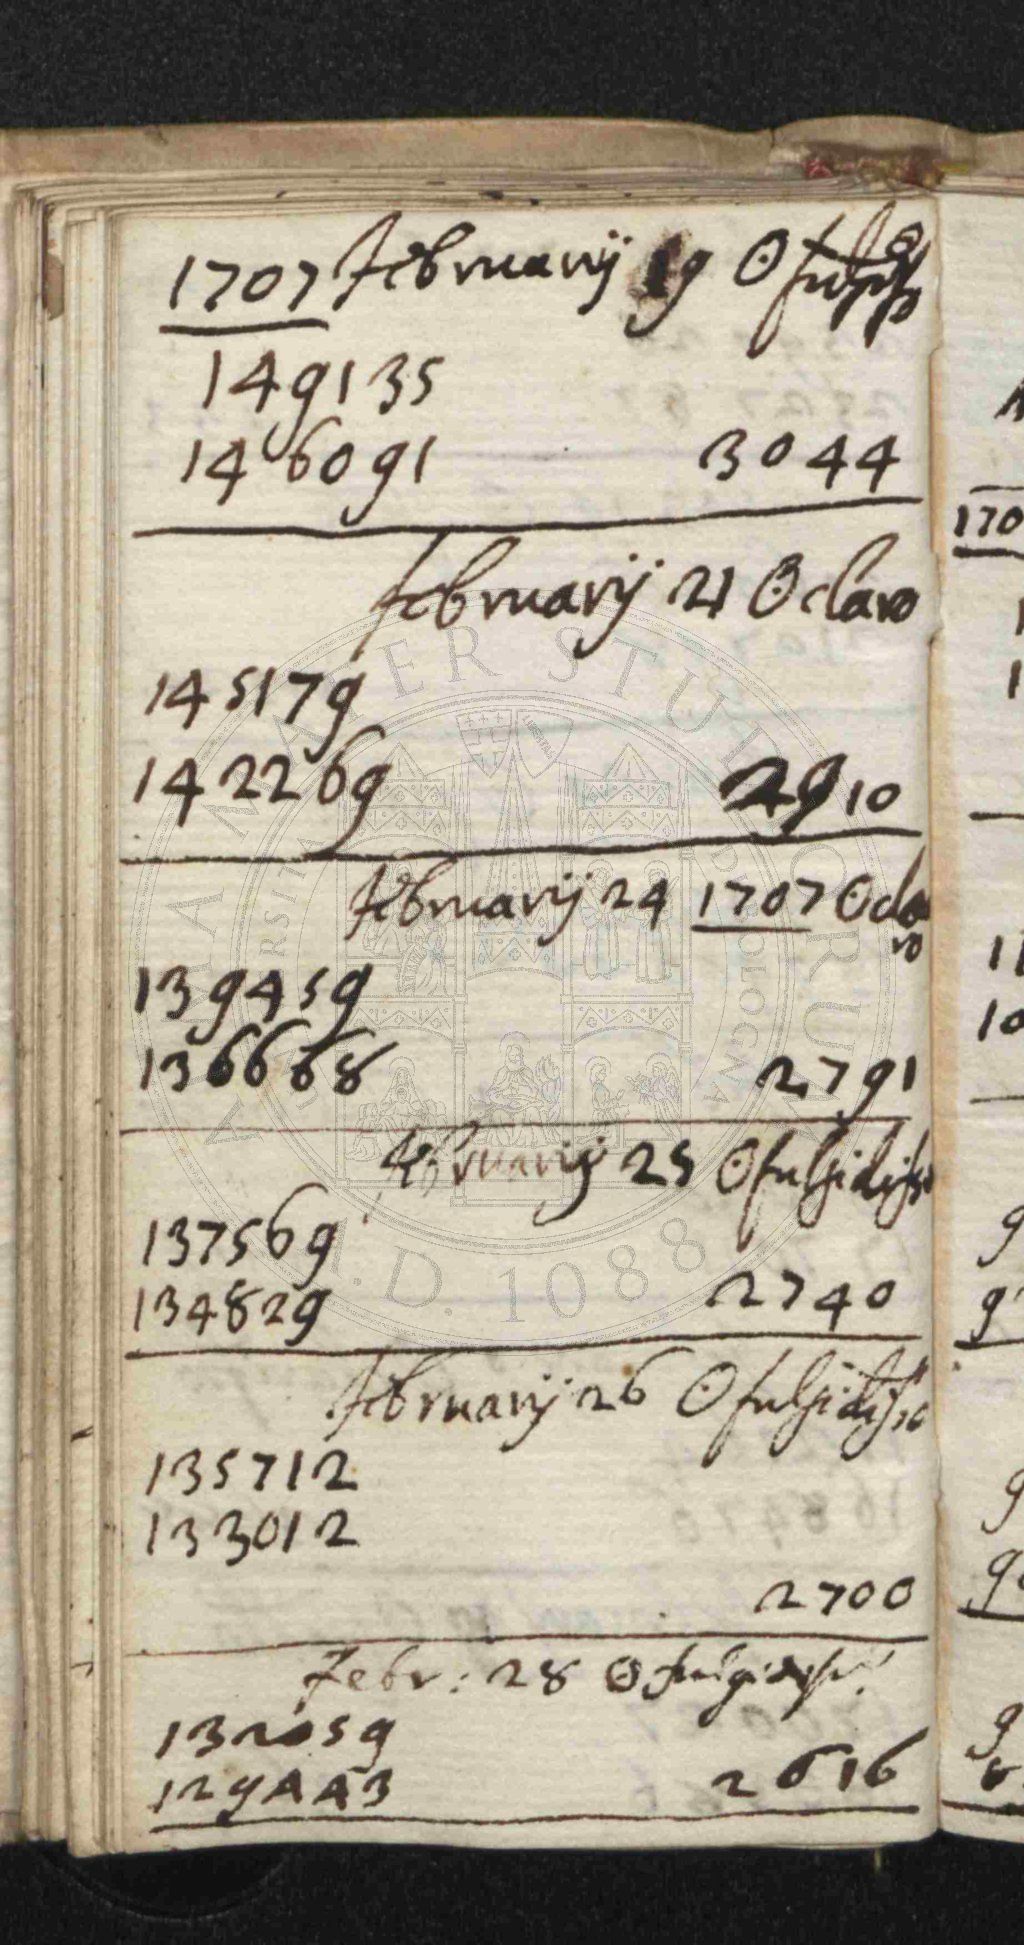 1707 Februarij 19 ☉ fulgidiss
149135
146091 3044
Februarij 21 ☉ claro
145179
142269 2910
Februarij 24 1707 ☉ cla
ro
139459
136668 2791
Februarij 25 ☉ fulgidisso
137569
134829 2740
Februarij 26 ☉ fulgidisso
135712
133012
2700
Febr: 28 ☉ fulgidiss.
132059
129443 2616
ALMA MATER STUDIORUM
UNIVERSITÀ DI BOLOGNA
A.D. 1088
170